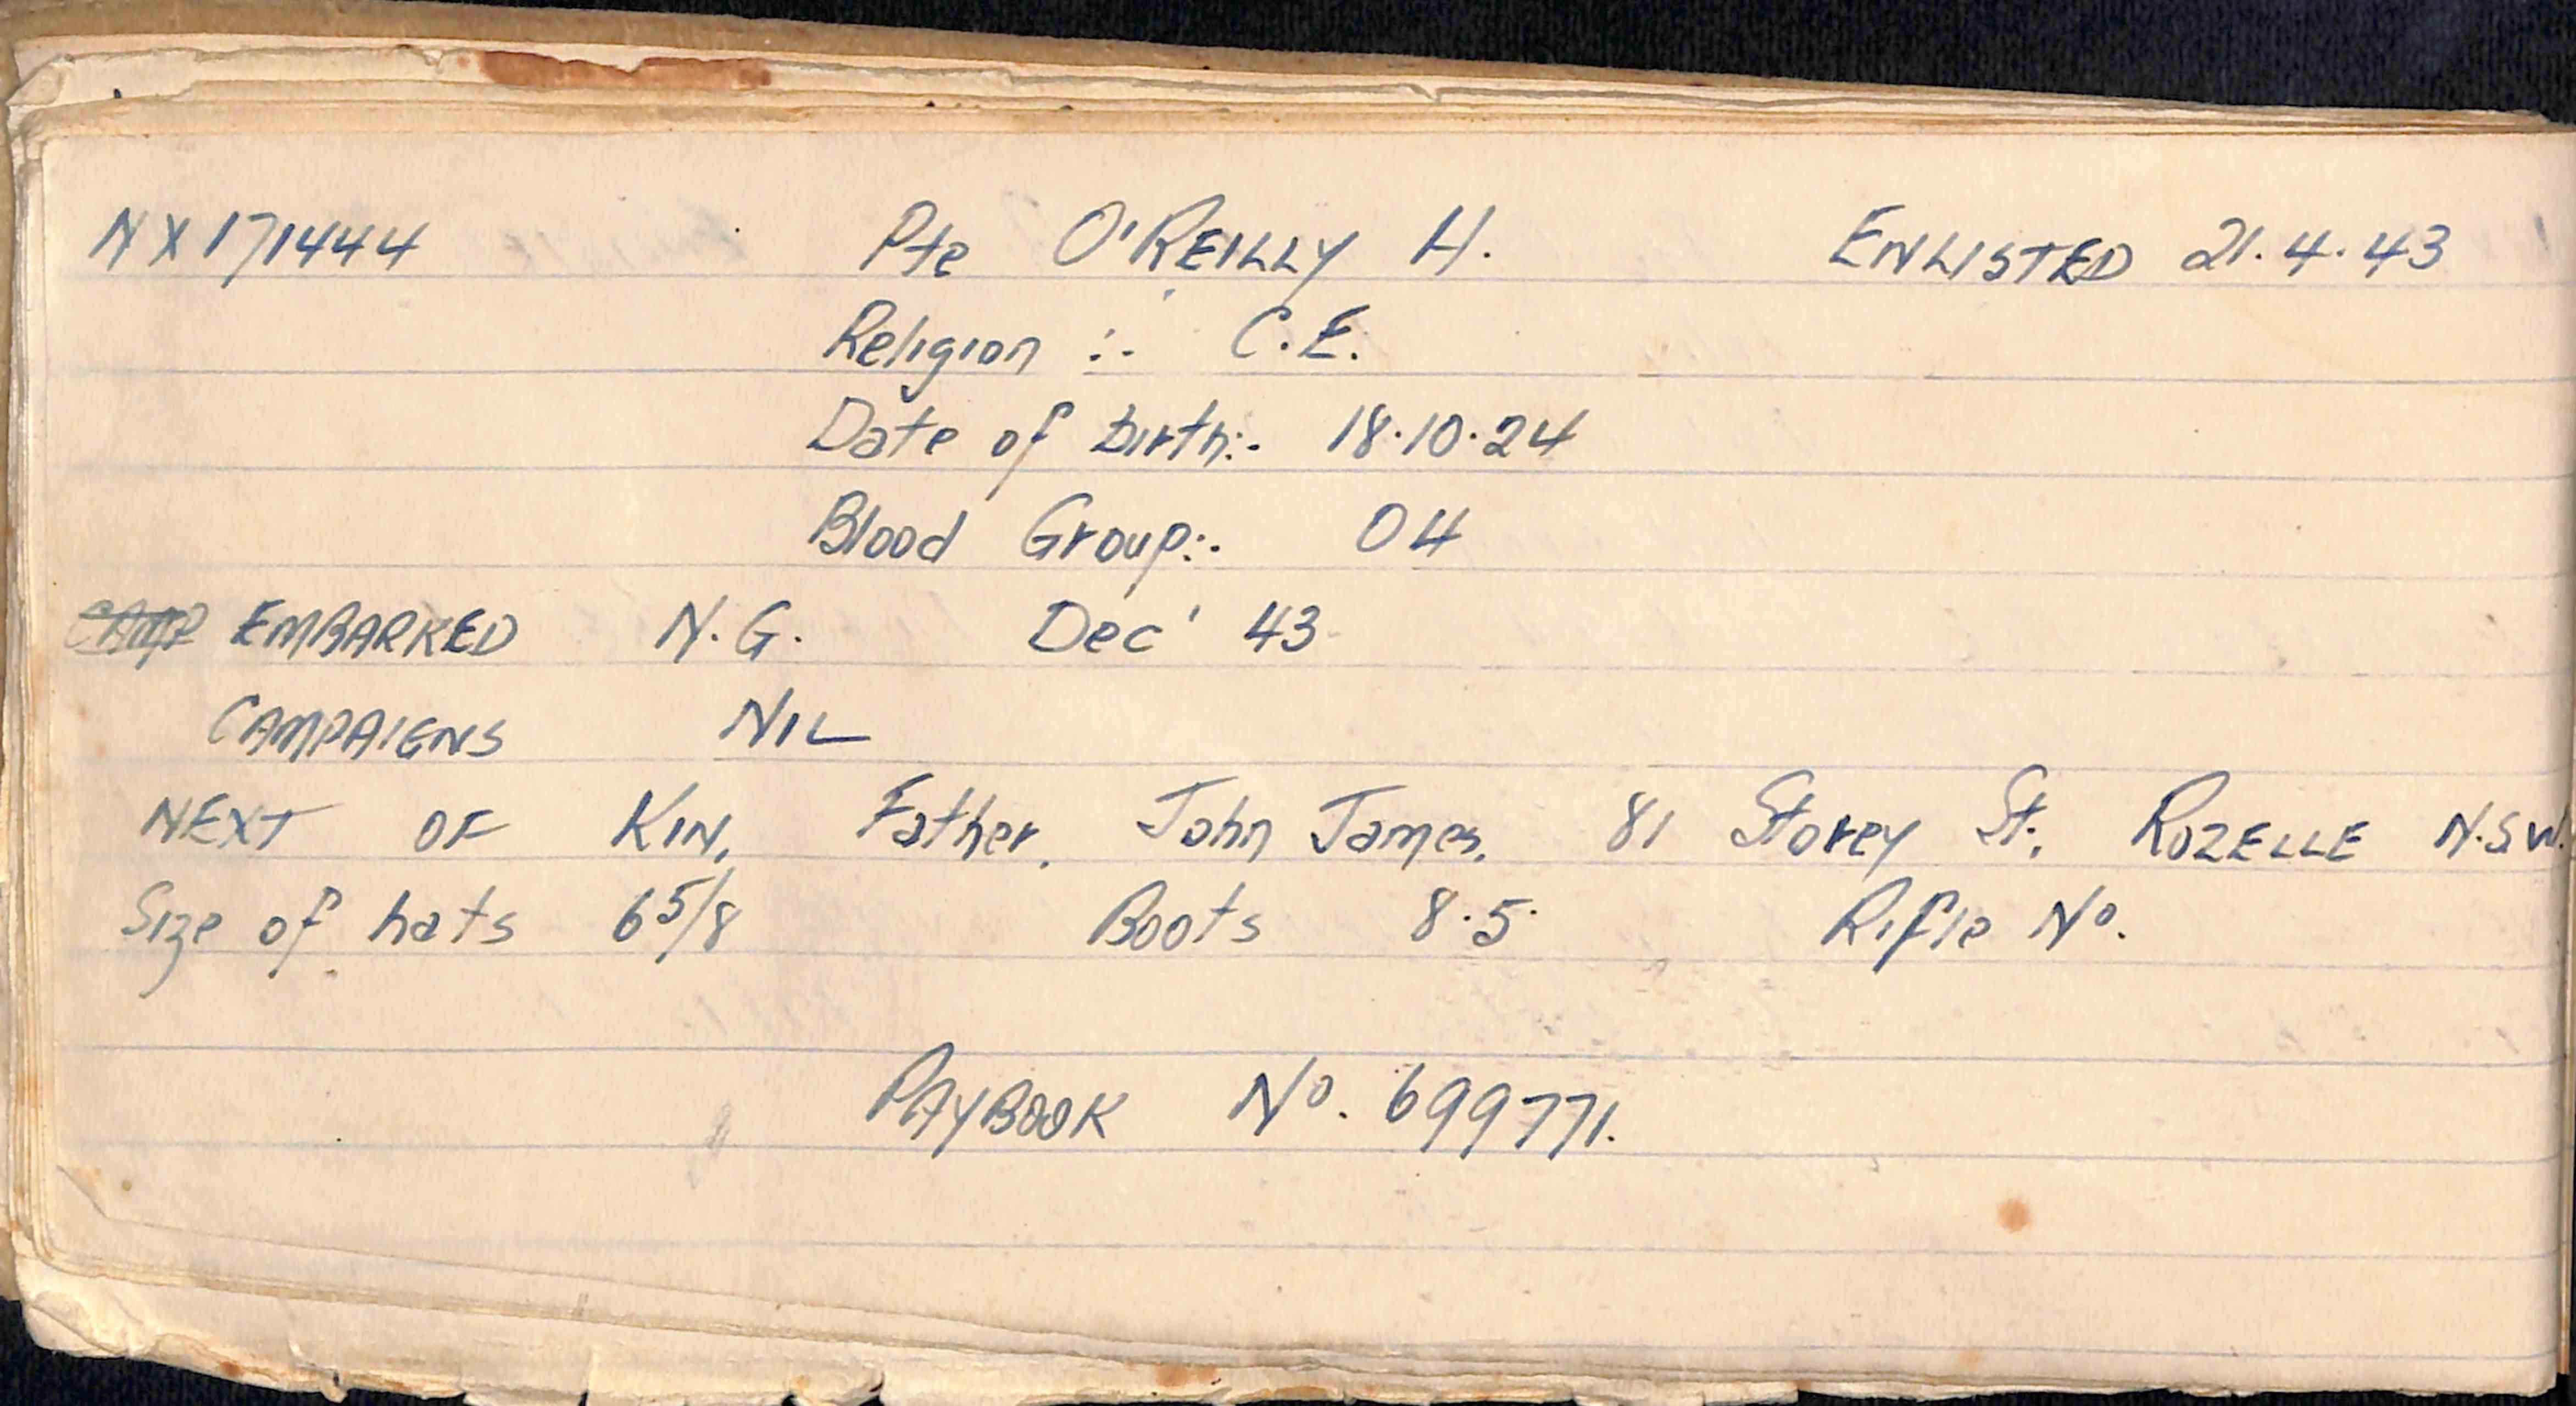 NX171444 Pte O'REILLY H. ENLISTED 21.4.43
Religion :. C.E.
Date of birth:. 18.10.24
Blood Group:. O4
EMBARKED N.G. Dec' 43
CAMPAIGNS NIL
NEXT OF KIN, Father. John James. 81 Storey St. ROZELLE N.S.W.
Size of hats 6 5/8 Boots 8.5. Rifle No.
PAYBOOK No. 699771.